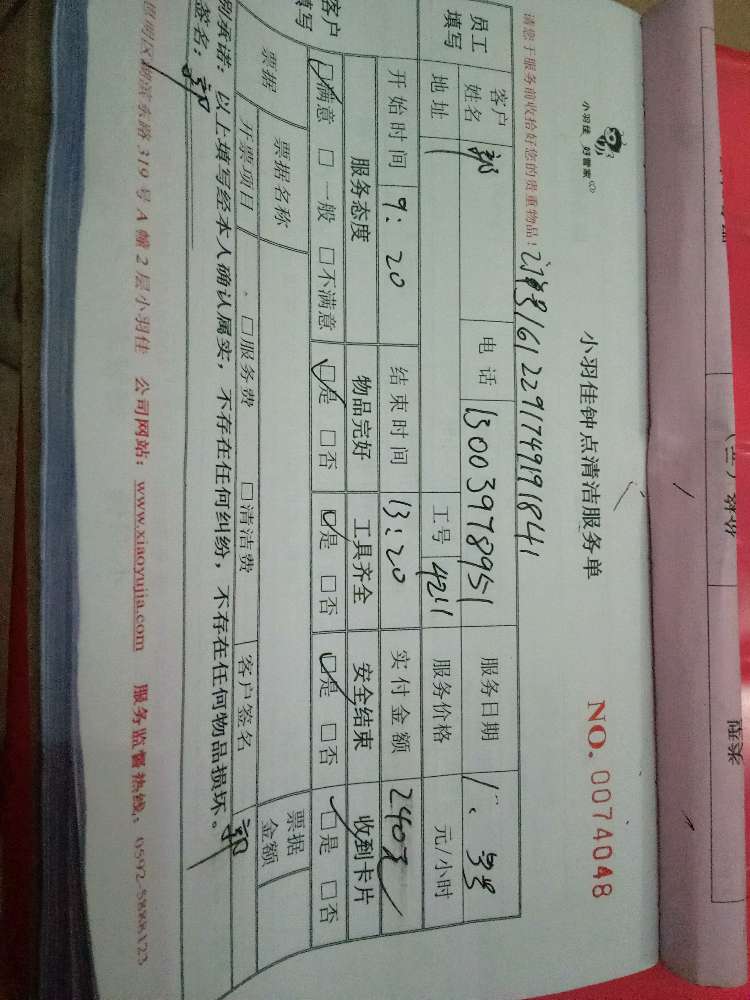 小羽佳 好管家
小羽佳钟点清洁服务单
NO. 0074048
请您于服务前收拾好您的贵重物品! 订单号16122917491911841
员工填写 客户姓名 郭 电话 13003978951 服务日期 1、3号
地址 工号 4211 服务价格 元/小时
开始时间 9:20 结束时间 13:20 实付金额 240元
客户填写 服务态度 物品完好 工具齐全 安全结束 收到卡片
☑满意 □一般 □不满意 ☑是 □否 ☑是 □否 ☑是 □否 ☑是 □否
票据 票据名称 客户签名 票据金额
开票项目 □服务费 □清洁费
承诺:以上填写经本人确认属实,不存在任何纠纷,不存在任何物品损坏。郭
签名:郭
明区湖滨东路319号A幢2层小羽佳 公司网站:www.xiaoyujia.com 服务监督热线:0592-5888123